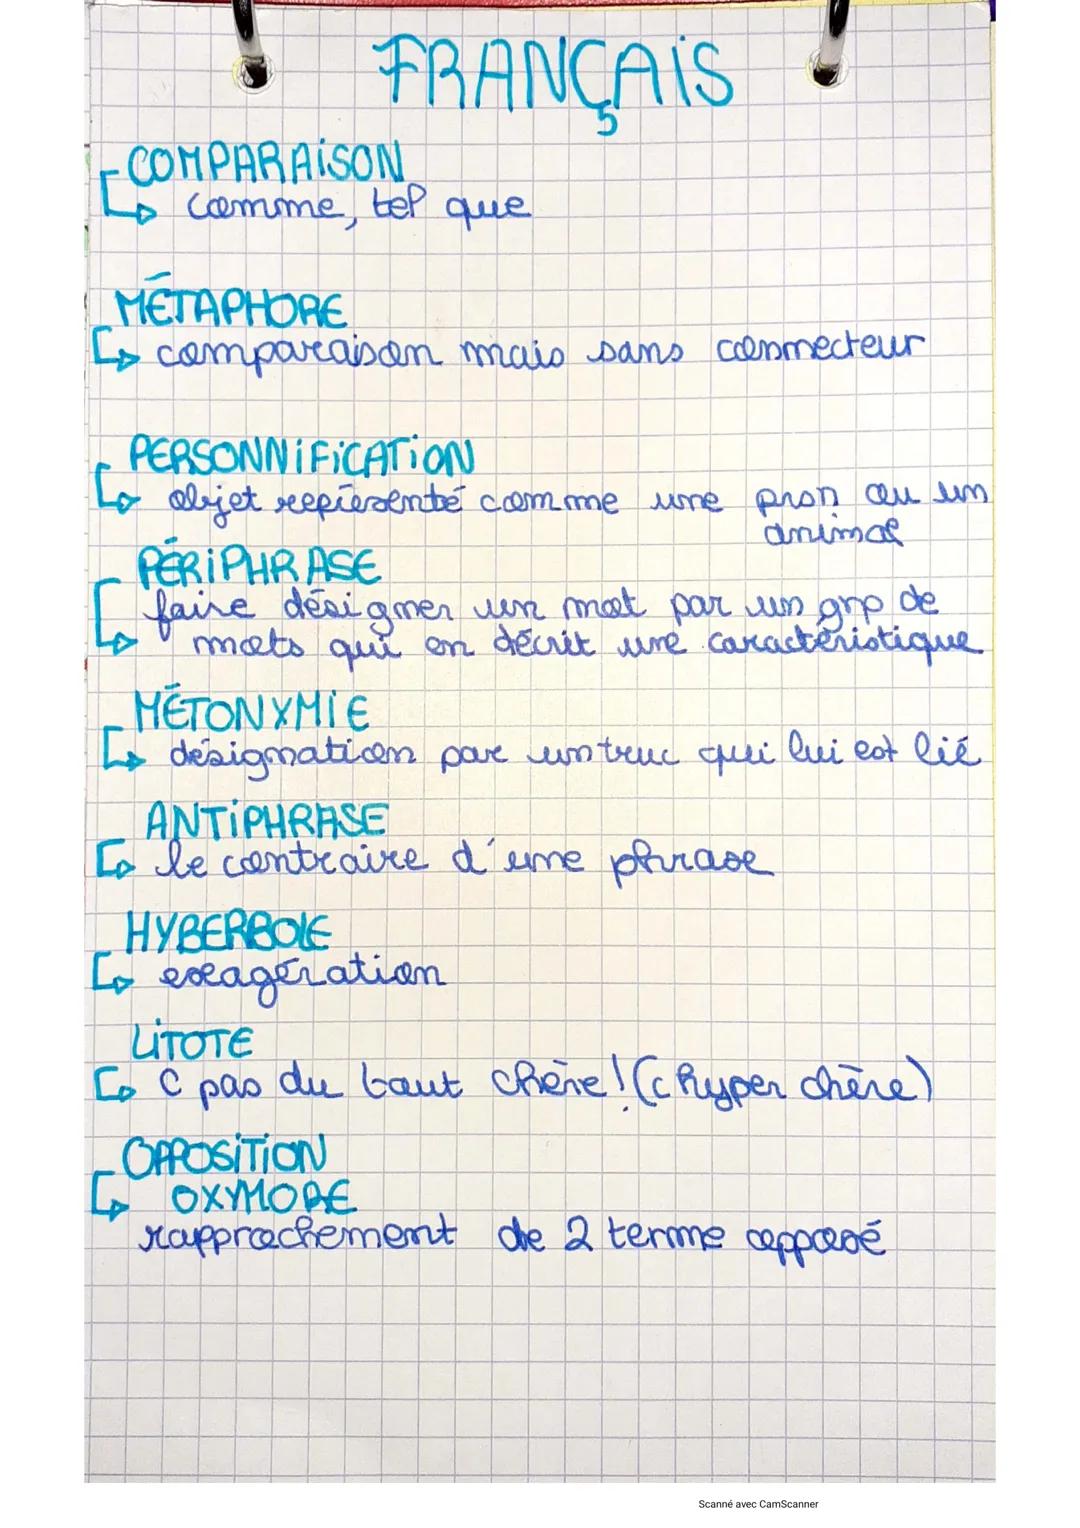 FRANÇAIS
COMPARAISON
comme, tel que
MÉTAPHORE
comparaison mais sans connecteur
PERSONNIFICATION
objet représenté comme une prsn ou un
animal
PÉRIPHRASE
faire désigner un mot par un grp de
mots qui en décrit une caractéristique
MÉTONYMIE
désignation par un truc qui lui est lié
ANTIPHRASE
le contraire d'une phrase
HYBERBOLE
exagération
LITOTE
C pas du tout chère! (c hyper chère)
OPPOSITION
OXYMORE
rapprochement de 2 terme opposé
Scanné avec CamScanner